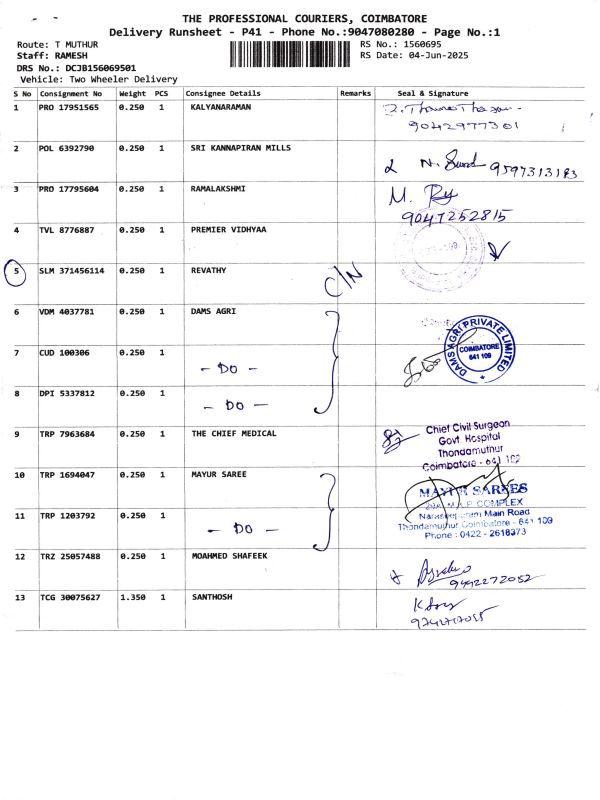 THE PROFESSIONAL COURIERS, COIMBATORE
Delivery Runsheet - P41 - Phone No.:9047080280 - Page No.:1
Route: T MUTHUR
RS No.: 1560695
Staff: RAMESH
RS Date: 04-Jun-2025
DRS No.: DCJB156069501
Vehicle: Two Wheeler Delivery
S No Consignment No Weight PCS Consignee Details Remarks Seal & Signature
1 PRO 17951565 0.250 1 KALYANARAMAN
9042977301
2 POL 6392790 0.250 1 SRI KANNAPIRAN MILLS
9597313183
3 PRO 17795604 0.250 1 RAMALAKSHMI
M.
9047252815
4 TVL 8776887 0.250 1 PREMIER VIDHYAA
5 SLM 371456114 0.250 1 REVATHY C/N
6 VDM 4037781 0.250 1 DAMS AGRI
DAMS AGRI PRIVATE LIMITED
COIMBATORE
641 109
7 CUD 100306 0.250 1 - DO -
8 DPI 5337812 0.250 1 - DO -
9 TRP 7963684 0.250 1 THE CHIEF MEDICAL
Chief Civil Surgeon
Govt. Hospital
Thondamuthur
Coimbatore - 641 109
10 TRP 1694047 0.250 1 MAYUR SAREE
MAYUR SAREES
M.A.P. COMPLEX
Main Road
11 TRP 1203792 0.250 1 - DO -
Thondamuthur Coimbatore - 641 109
Phone : 0422 - 2618373
12 TRZ 25057488 0.250 1 MOAHMED SHAFEEK
9442272052
13 TCG 30075627 1.350 1 SANTHOSH